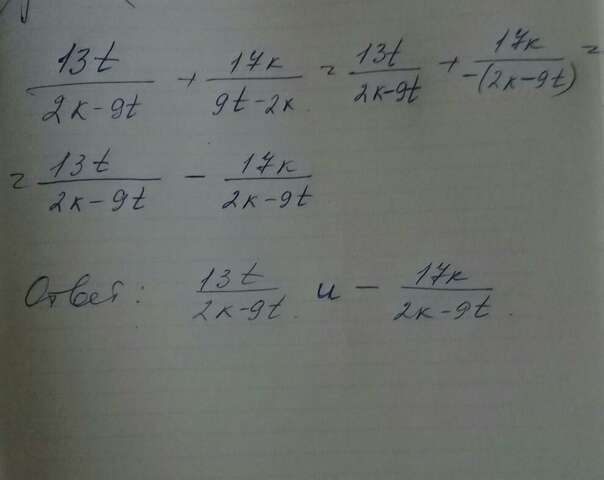 13t/(2к-9t) + 17к/(9t-2к) = 13t/(2к-9t) + 17к/(-(2к-9t)) =
= 13t/(2к-9t) - 17к/(2к-9t)
Ответ: 13t/(2к-9t) и - 17к/(2к-9t).